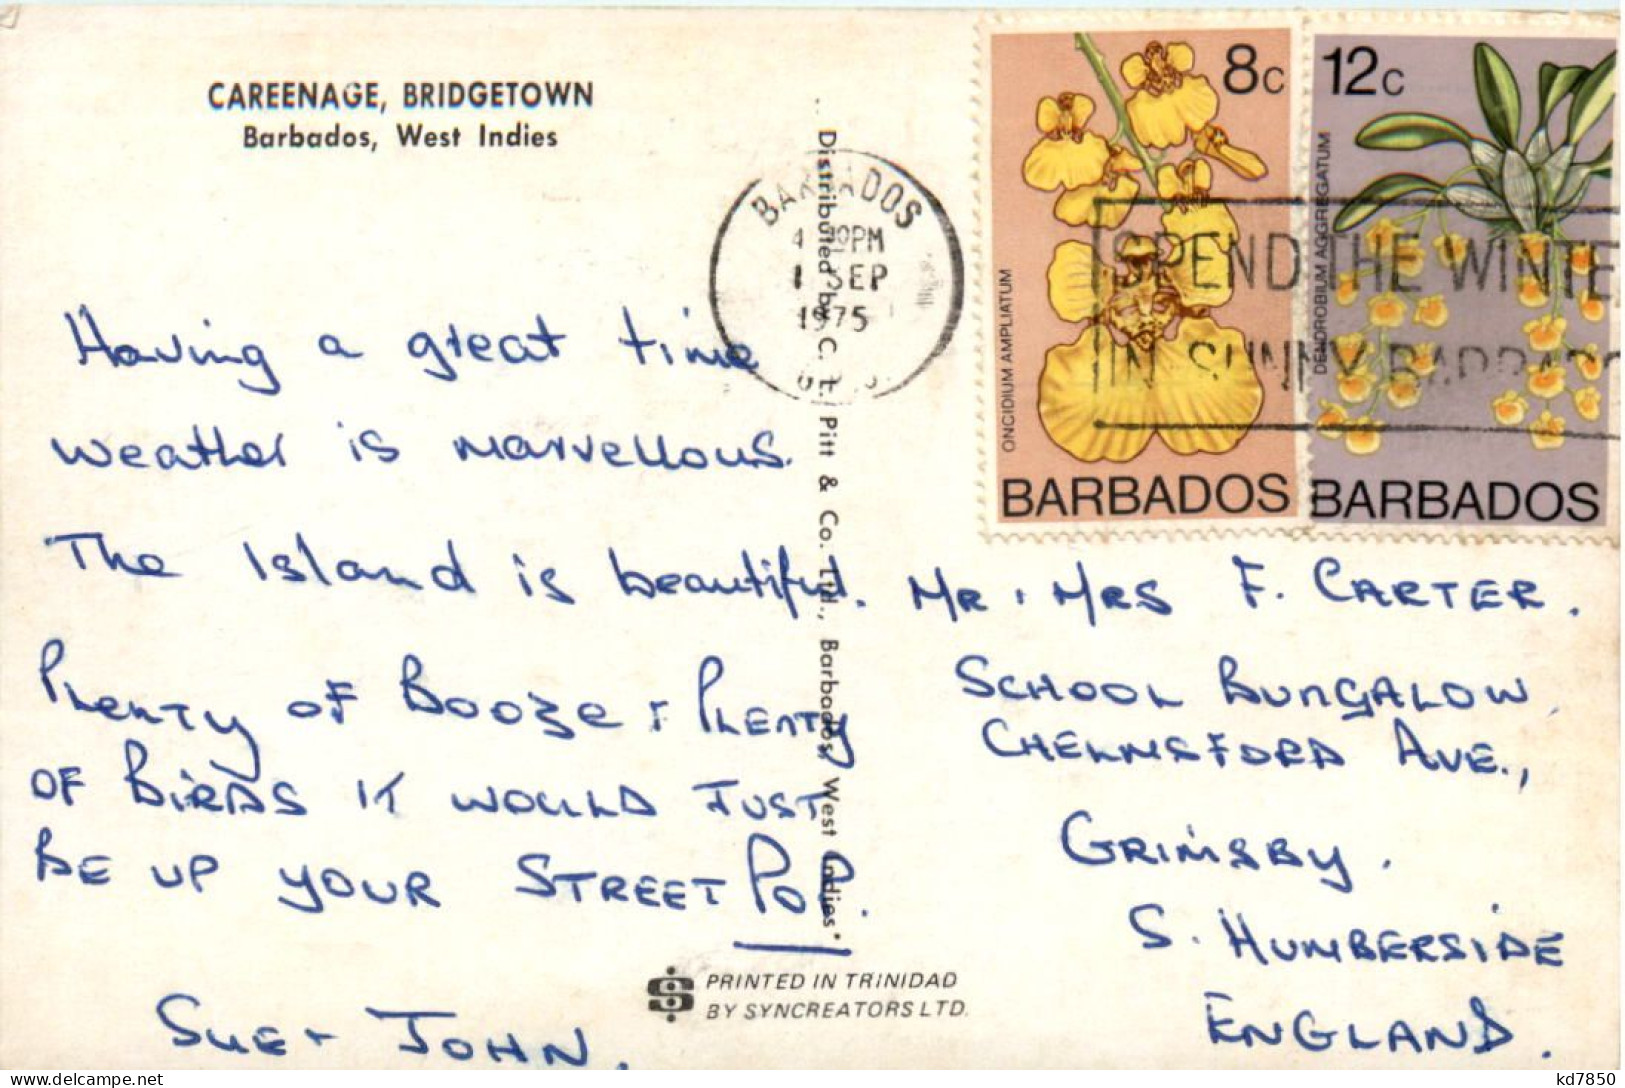 CAREENAGE, BRIDGETOWN
Barbados, West Indies
Having a great time
weather is marvellous.
The Island is beautiful.
PLENTY OF BOOZE + PLENTY
OF BIRDS IT WOULD JUST
BE UP YOUR STREET POP.
SUE + JOHN.
Distributed by C. L. Pitt & Co. Ltd., Barbados, West Indies
PRINTED IN TRINIDAD
BY SYNCREATORS LTD.
BARBADOS
PM
1 SEP
1975
8c
ONCIDIUM AMPLIATUM
BARBADOS
12c
DENDROBIUM AGGREGATUM
BARBADOS
SPEND THE WINTE
IN SUNNY BARBADO
MR + MRS F. CARTER.
SCHOOL BUNGALOW,
CHELMSFORD AVE.,
GRIMSBY.
S. HUMBERSIDE
ENGLAND.
kd7850